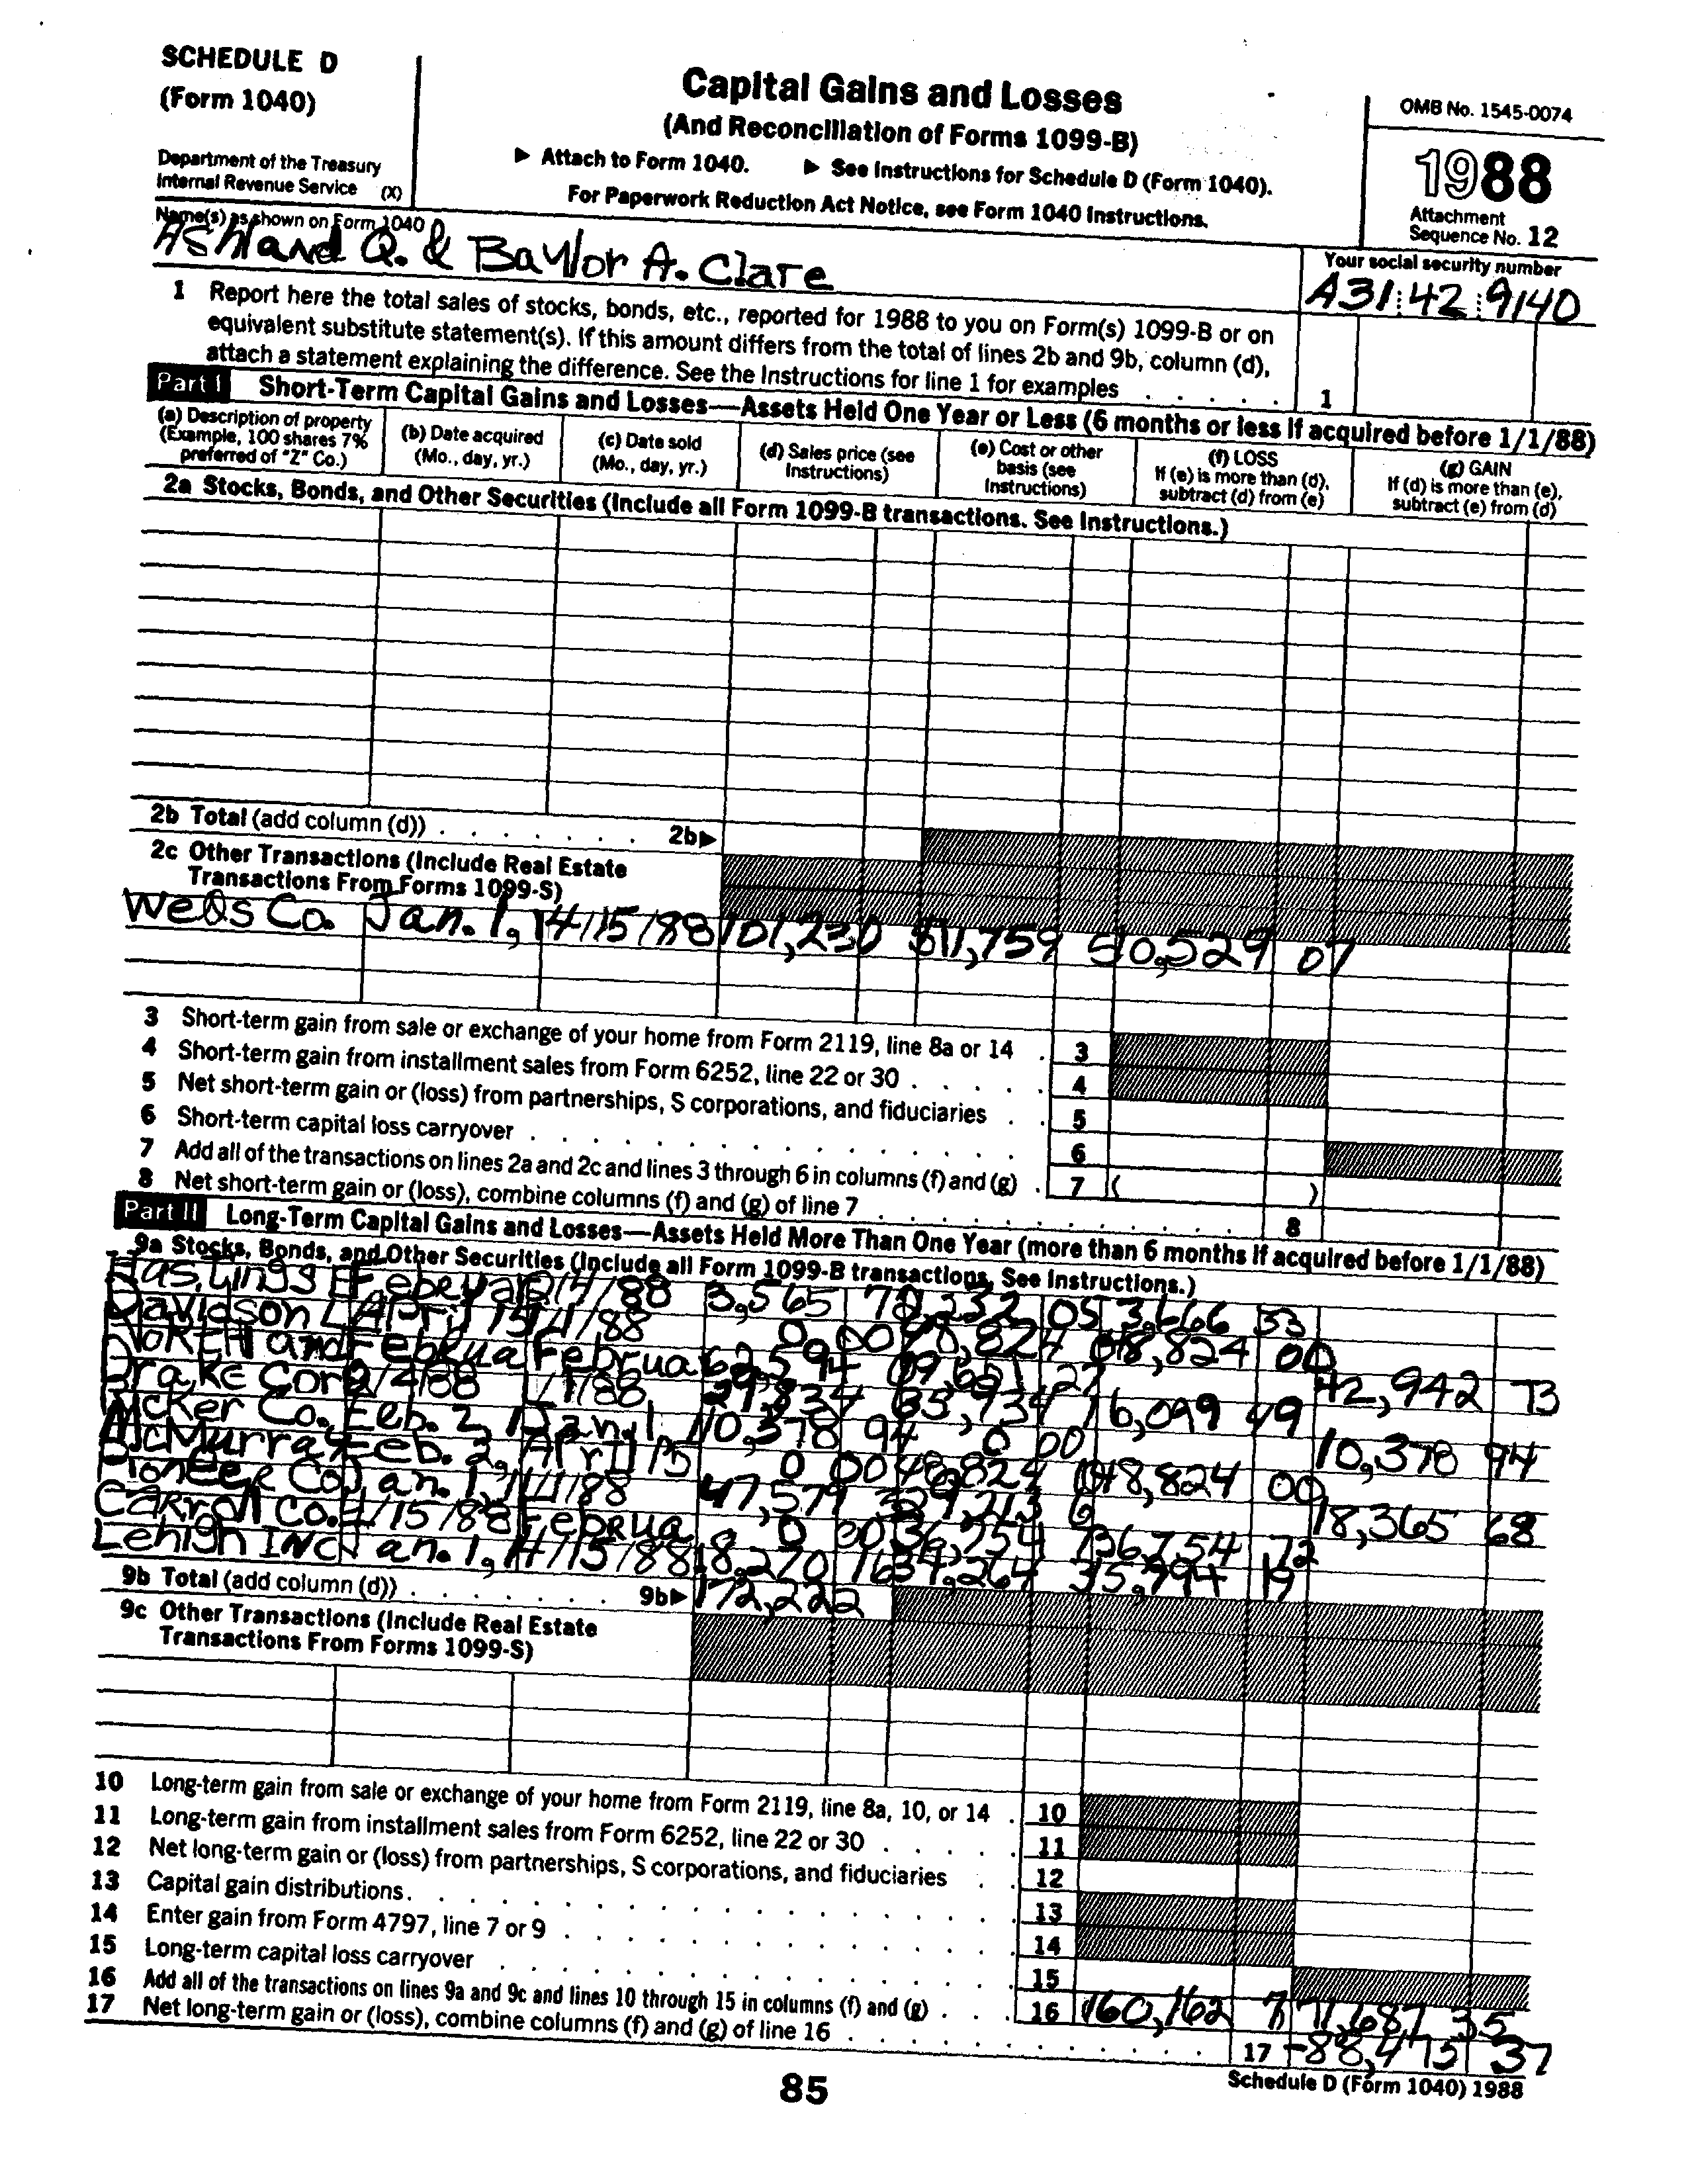 SCHEDULE D
(Form 1040)
Department of the Treasury
Internal Revenue Service (X)
Capital Gains and Losses
(And Reconciliation of Forms 1099-B)
▶ Attach to Form 1040. ▶ See Instructions for Schedule D (Form 1040).
For Paperwork Reduction Act Notice, see Form 1040 Instructions.
OMB No. 1545-0074
1988
Attachment
Sequence No. 12
Name(s) as shown on Form 1040
Ashland Q. & Baylor A. Clare
Your social security number
A31 42 9140
1 Report here the total sales of stocks, bonds, etc., reported for 1988 to you on Form(s) 1099-B or on
equivalent substitute statement(s). If this amount differs from the total of lines 2b and 9b, column (d),
attach a statement explaining the difference. See the Instructions for line 1 for examples . . . . . 1
Part I Short-Term Capital Gains and Losses—Assets Held One Year or Less (6 months or less if acquired before 1/1/88)
(a) Description of property
(Example, 100 shares 7%
preferred of "Z" Co.)
(b) Date acquired
(Mo., day, yr.)
(c) Date sold
(Mo., day, yr.)
(d) Sales price (see
Instructions)
(e) Cost or other
basis (see
Instructions)
(f) LOSS
If (e) is more than (d),
subtract (d) from (e)
(g) GAIN
If (d) is more than (e),
subtract (e) from (d)
2a Stocks, Bonds, and Other Securities (Include all Form 1099-B transactions. See Instructions.)
2b Total (add column (d)) . . . . . . . 2b▶
2c Other Transactions (Include Real Estate
Transactions From Forms 1099-S)
Co. Jan. 1, 4/15/88 101,230 10,529 07
3 Short-term gain from sale or exchange of your home from Form 2119, line 8a or 14 . 3
4 Short-term gain from installment sales from Form 6252, line 22 or 30 . . . . . 4
5 Net short-term gain or (loss) from partnerships, S corporations, and fiduciaries . . 5
6 Short-term capital loss carryover . . . . . . . . . . . . . . 6
7 Add all of the transactions on lines 2a and 2c and lines 3 through 6 in columns (f) and (g) . 7 ( )
8 Net short-term gain or (loss), combine columns (f) and (g) of line 7 . . . . . . . . . . . . 8
Part II Long-Term Capital Gains and Losses—Assets Held More Than One Year (more than 6 months if acquired before 1/1/88)
9a Stocks, Bonds, and Other Securities (Include all Form 1099-B transactions. See Instructions.)
Hastings 4/88 3,565 05 3,666 53
Davidson April 15 1/1/88 0 00 18,824 00
North and Februa Februa 62,594 27 42,942 73
Drake Cor 2/4/88 1/1/88 29,834 16,099 49
Acker Co. Feb. 2, Jan. 1 10,378 94 0 00 10,378 94
McMurray Feb. 2, April 15 0 00 48,824 00
Pioneer Co Jan. 1, 1/1/88 47,579 18,365 68
Carroll Co. 4/15/88 Februa 0 00 36,754 72
Lehigh INC Jan. 1, 4/15/88 18,270 15,994 19
9b Total (add column (d)) . . . . . . . 9b▶ 172,222
9c Other Transactions (Include Real Estate
Transactions From Forms 1099-S)
10 Long-term gain from sale or exchange of your home from Form 2119, line 8a, 10, or 14 . 10
11 Long-term gain from installment sales from Form 6252, line 22 or 30 . . . . . 11
12 Net long-term gain or (loss) from partnerships, S corporations, and fiduciaries . . 12
13 Capital gain distributions. . . . . . . . . . . . . . . . . . 13
14 Enter gain from Form 4797, line 7 or 9 . . . . . . . . . . . . . 14
15 Long-term capital loss carryover . . . . . . . . . . . . . . . 15
16 Add all of the transactions on lines 9a and 9c and lines 10 through 15 in columns (f) and (g) . . . 16 160,162 7 71,687 35
17 Net long-term gain or (loss), combine columns (f) and (g) of line 16 . . . . . . . . . . . . 17 -88,475 37
85
Schedule D (Form 1040) 1988